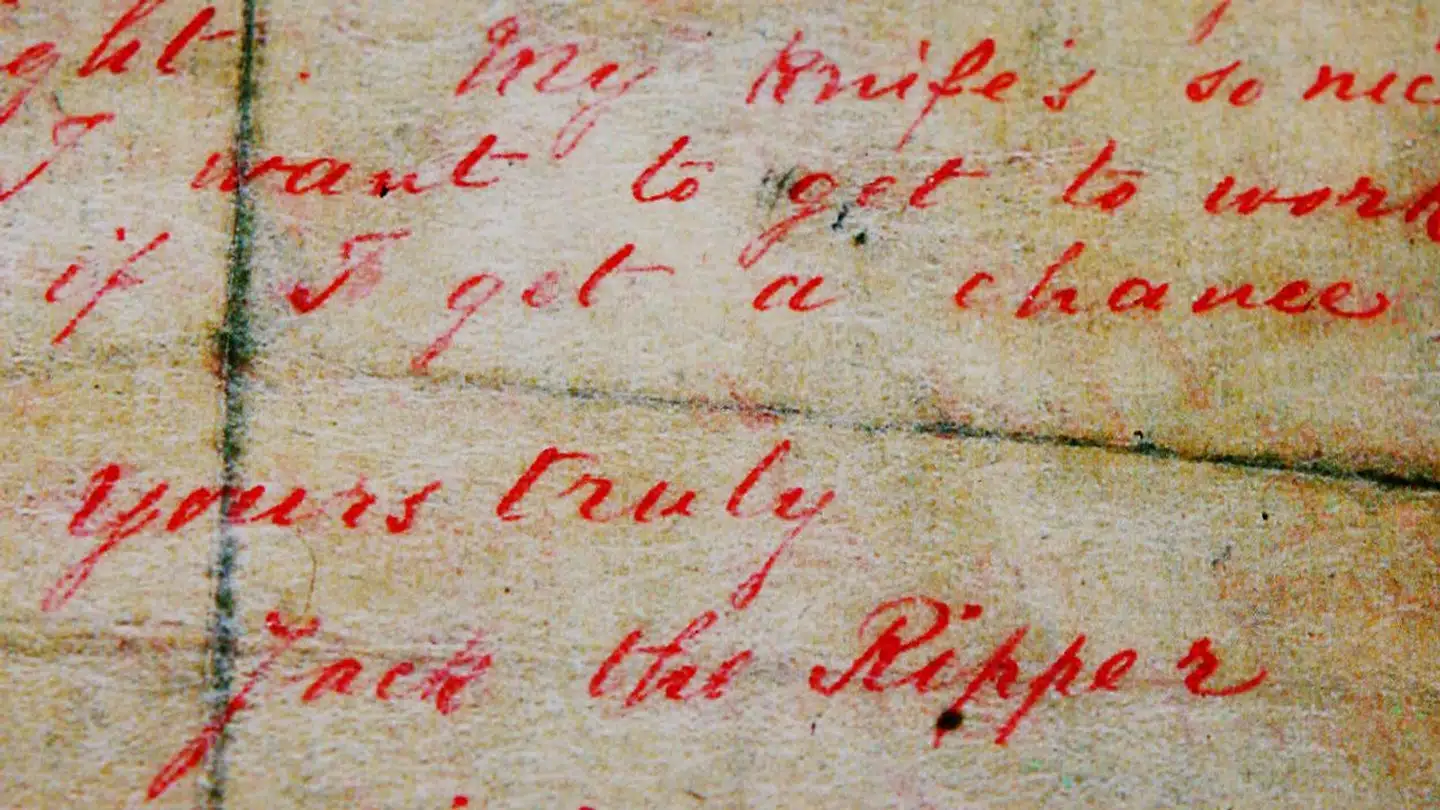 ght. My knife's so nic
I want to get to work
if I get a chance.
yours truly
Jack the Ripper